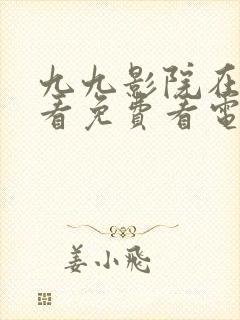 九九影院在
看免費看電
姜小飛